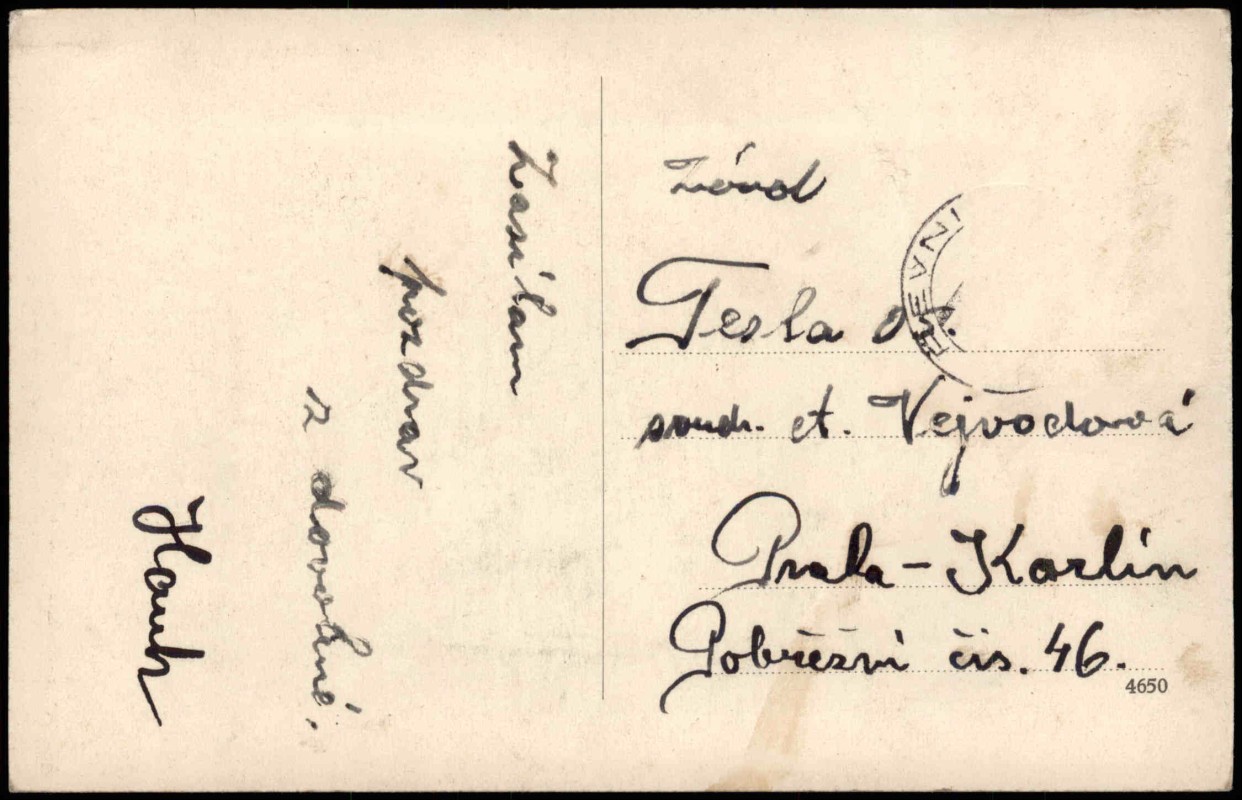 Zasílám
pozdrav
z dovolené.
závod
Tesla
soudr. et. Vejvodová
Praha - Karlín
Pobřežní čís. 46.
4650